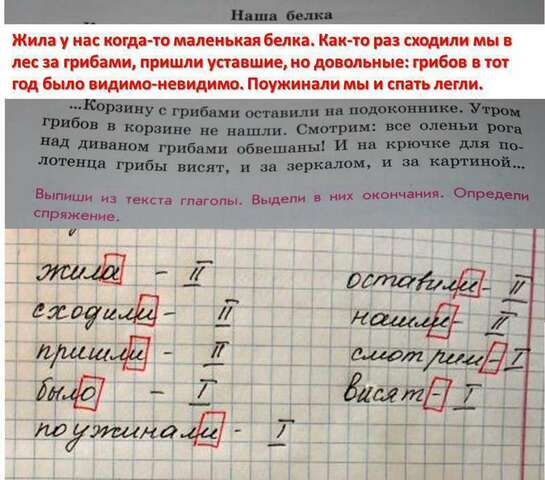 Наша белка
Жила у нас когда-то маленькая белка. Как-то раз сходили мы в
лес за грибами, пришли уставшие, но довольные: грибов в тот
год было видимо-невидимо. Поужинали мы и спать легли.
...Корзину с грибами оставили на подоконнике. Утром
грибов в корзине не нашли. Смотрим: все оленьи рога
над диваном грибами обвешаны! И на крючке для по-
лотенца грибы висят, и за зеркалом, и за картиной...
Выпиши из текста глаголы. Выдели в них окончания. Определи
спряжение.
жила - II
сходили - II
пришли - II
было - I
поужинали - I
оставили - II
нашли - II
смотрим - I
висят - I